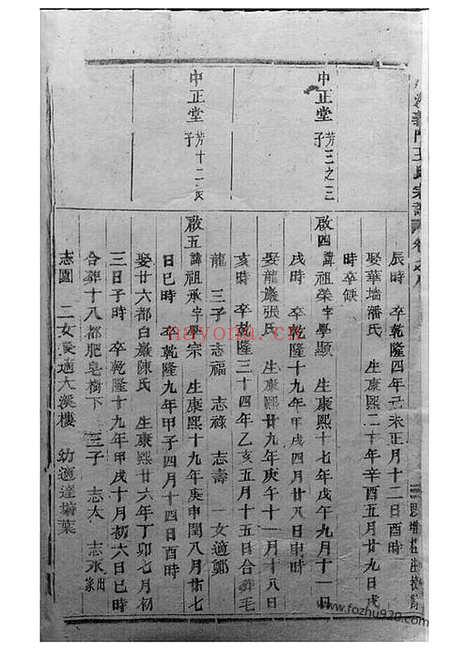 義門王氏宗譜
辰時 卒乾隆四年己未正月十二日酉時
娶華墻潘氏 生康熙二十年辛酉五月廿九日戌
時卒缺
中正堂 芳三之三子
啟四 諱祖榮字學顯 生康熙十七年戊午九月十一日
戌時 卒乾隆十九年甲戌四月廿八日申時
娶龍巖張氏 生康熙廿九年庚午十一月十八日
亥時 卒乾隆三十四年乙亥五月十五日合葬毛
龍 三子 志福 志祿 志壽 一女適鄭
中正堂 芳十二長子
啟五 諱祖承字學宗 生康熙十九年庚申閏八月廿七
日巳時 卒乾隆九年甲子四月十四日酉時
娶廿六都白巖陳氏 生康熙廿六年丁卯七月初
三日子時 卒乾隆十九年甲戌十月初六日巳時
合葬十八都肥皂樹下 三子 志太 志永出家
志園 二女長適大溪樓 幼適達塘葉
nayona.cn
www.fozhu920.com